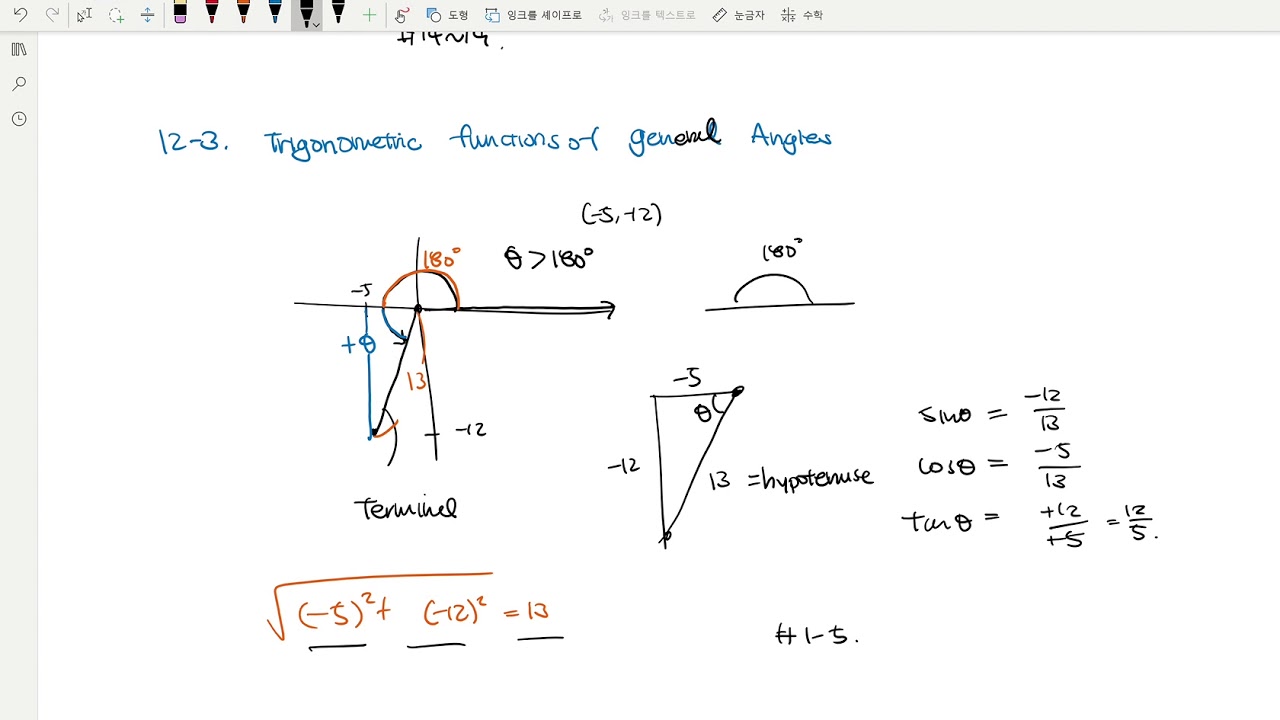 도형 잉크를 셰이프로 잉크를 텍스트로 눈금자 수학
#14~19.
12-3. Trigonometric functions of general Angles
(-5,-12)
180°
θ>180°
180°
-5
+θ
13
-12
Terminal
-5
θ
-12
13 =hypotenuse
sinθ = -12/13
cosθ = -5/13
tanθ = +12/+5 = 12/5.
√(-5)²+ (-12)² = 13
#1-5.